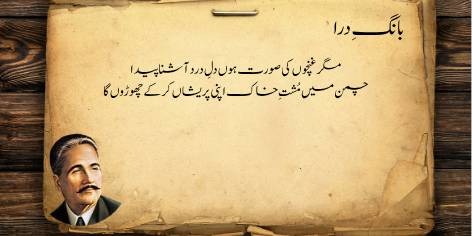 بانگِ درا
مگر غنچوں کی صورت ہوں دلِ درد آشنا پیدا
چمن میں مُشتِ خاک اپنی پریشاں کر کے چھوڑوں گا